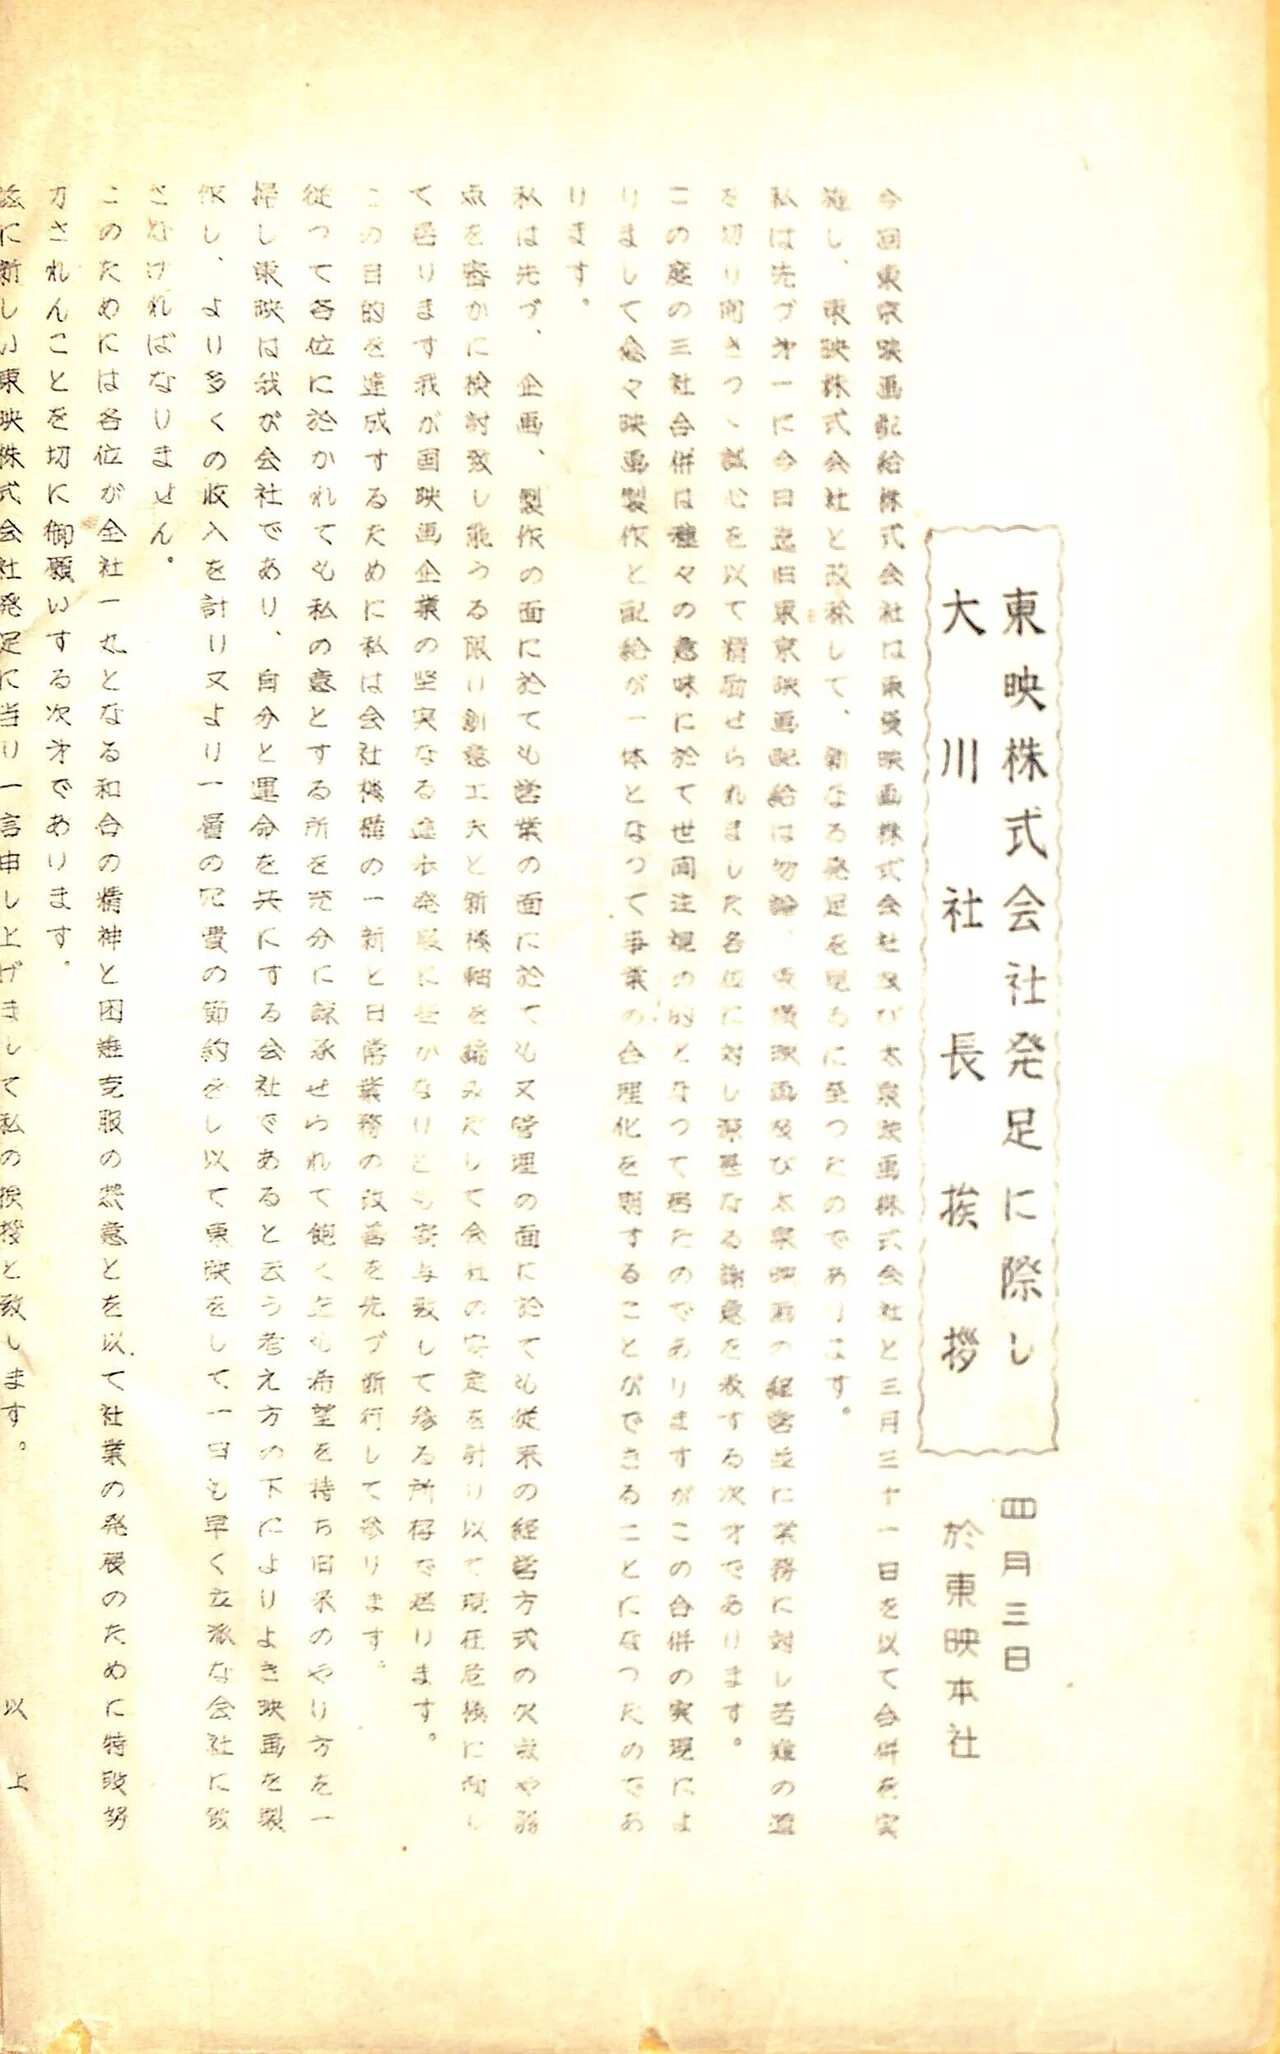 東映株式会社発足に際し
四月三日
大川社長挨拶
於東映本社
今回東京映画配給株式会社は東横映画株式会社及び太泉映画株式会社と三月三十一日を以て合併を実
施し、東映株式会社と改称して、新なる発足を見るに至つたのであります。
私は先づ才一に今日迄旧東京映画配給は勿論、東横映画及び太泉映画の経営並に業務に対し苦難の道
を切り開きつゝ誠心を以て精励せられました各位に対し深甚なる謝意を表する次才であります。
この度の三社合併は種々の意味に於て世間注視の的となつて居たのでありますがこの合併の実現によ
りまして愈々映画製作と配給が一体となつて事業の合理化を期することができることになつたのであ
ります。
私は先づ、企画、製作の面に於ても営業の面に於ても又管理の面に於ても従来の経営方式の欠点や弱
点を審かに検討致し能うる限り創意工夫と新機軸を編みだして会社の安定を計り以て現在危機に面し
て居ります我が国映画企業の堅実なる進歩発展にせかなりとも寄与致して参る所存で居ります。
この目的を達成するために私は会社機構の一新と日常業務の改善を先づ断行して参ります。
従つて各位に於かれても私の意とする所を充分に諒承せられて飽く迄も希望を持ち旧来のやり方を一
掃し東映は我が会社であり、自分と運命を共にする会社であると云う考え方の下によりよき映画を製
作し、より多くの収入を計り又より一層の冗費の節約をし以て東映をして、一日も早く立派な会社に致
さなければなりません。
このためには各位が全社一丸となる和合の精神と困難克服の熱意とを以て社業の発展のために特段努
力されんことを切に御願いする次才であります。
茲に新しい東映株式会社発足に当り一言申し上げまして私の挨拶と致します。
以上